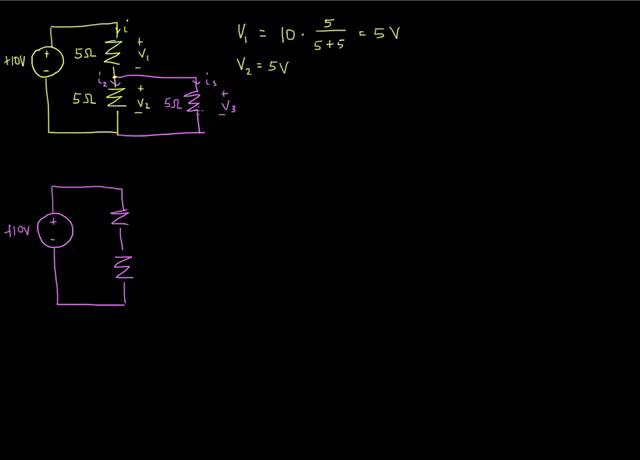 i
+10V
+
-
5Ω
+
V₁
-
i₂
i₃
5Ω
+
V₂
-
5Ω
+
V₃
-
V₁ = 10 · 5/(5+5) = 5 V
V₂ = 5V
+10V
+
-